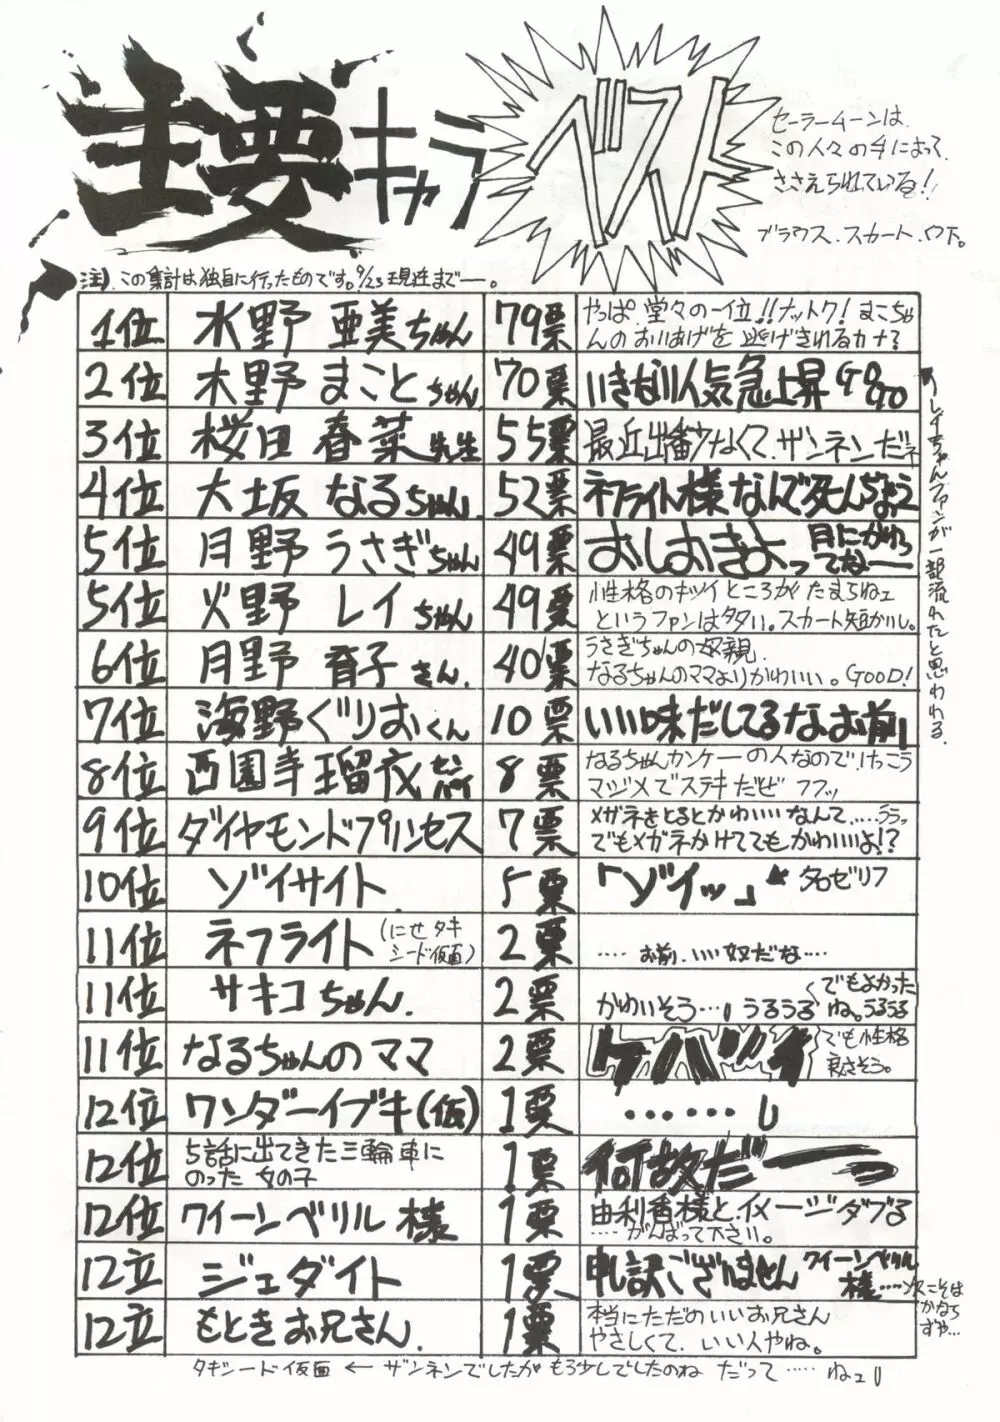 主要キャラ
ベスト
セーラームーンは、
この人々の手によって、
ささえられている!
ブラウス.スカート.ウ下。
注).この集計は独自に行ったものです。9/23現在まで―。
1位 水野 亜美ちゃん 79票 やっぱ堂々の一位!!ナットク! まこちゃ
んのおいあげを 逃げきれるカナ?
2位 木野 まことちゃん 70票 いきなり人気急上昇GO GO
3位 桜田 春菜先生 55票 最近出番少なくて、ザンネンだネ
4位 大坂 なるちゃん 52票 ネフライト様なんで死んじゃう
5位 月野 うさぎちゃん 49票 おしおきよっ 月にかわっ
てな――
5位 火野 レイちゃん 49票 性格のキツイところがたまらねェ
というファンは多い。スカート短かいし。
6位 月野 育子さん. 40票 うさぎちゃんの母親.
なるちゃんのママよりかわいい。GOOD!
7位 海野ぐりおくん 10票 いい味だしてるなお前
8位 西園寺瑠衣 8票 なるちゃんカンケーの人なので、けっこう
マジメでステキだぜ フフッ
9位 ダイヤモンドプリンセス 7票 メガネをとるとかわいいなんて.....うう
でもメガネかけててもかわいいよ!?
10位 ゾイサイト. 5票 「ゾイッ」 名ゼリフ
11位 ネフライト(にせタキ
シード仮面) 2票 ....お前.いい奴だな....
11位 サキコちゃん. 2票 かわいそう...うるうる でもよかった
ね。うるうる
11位 なるちゃんのママ 2票 ケバツイ でも性格
良さそう。
12位 ワンダーイブキ(仮) 1票 ......
12位 5話に出てきた三輪車に
のった 女の子 1票 何故だーっ
12位 クイーンベリル 様 1票 由利香様とイメージダブる
....がんばって下さい。
12位 ジェダイト 1票 申し訳ございません クイーンベリル
様....次こそは
かなら
ずや...
12位 もときお兄さん. 1票 本当にただのいいお兄さん
やさしくて、いい人やね。
レイちゃんファンが一部流れたと思われる.
タキシード仮面 ← ザンネンでしたがもう少しでしたのね だって.....ねェ